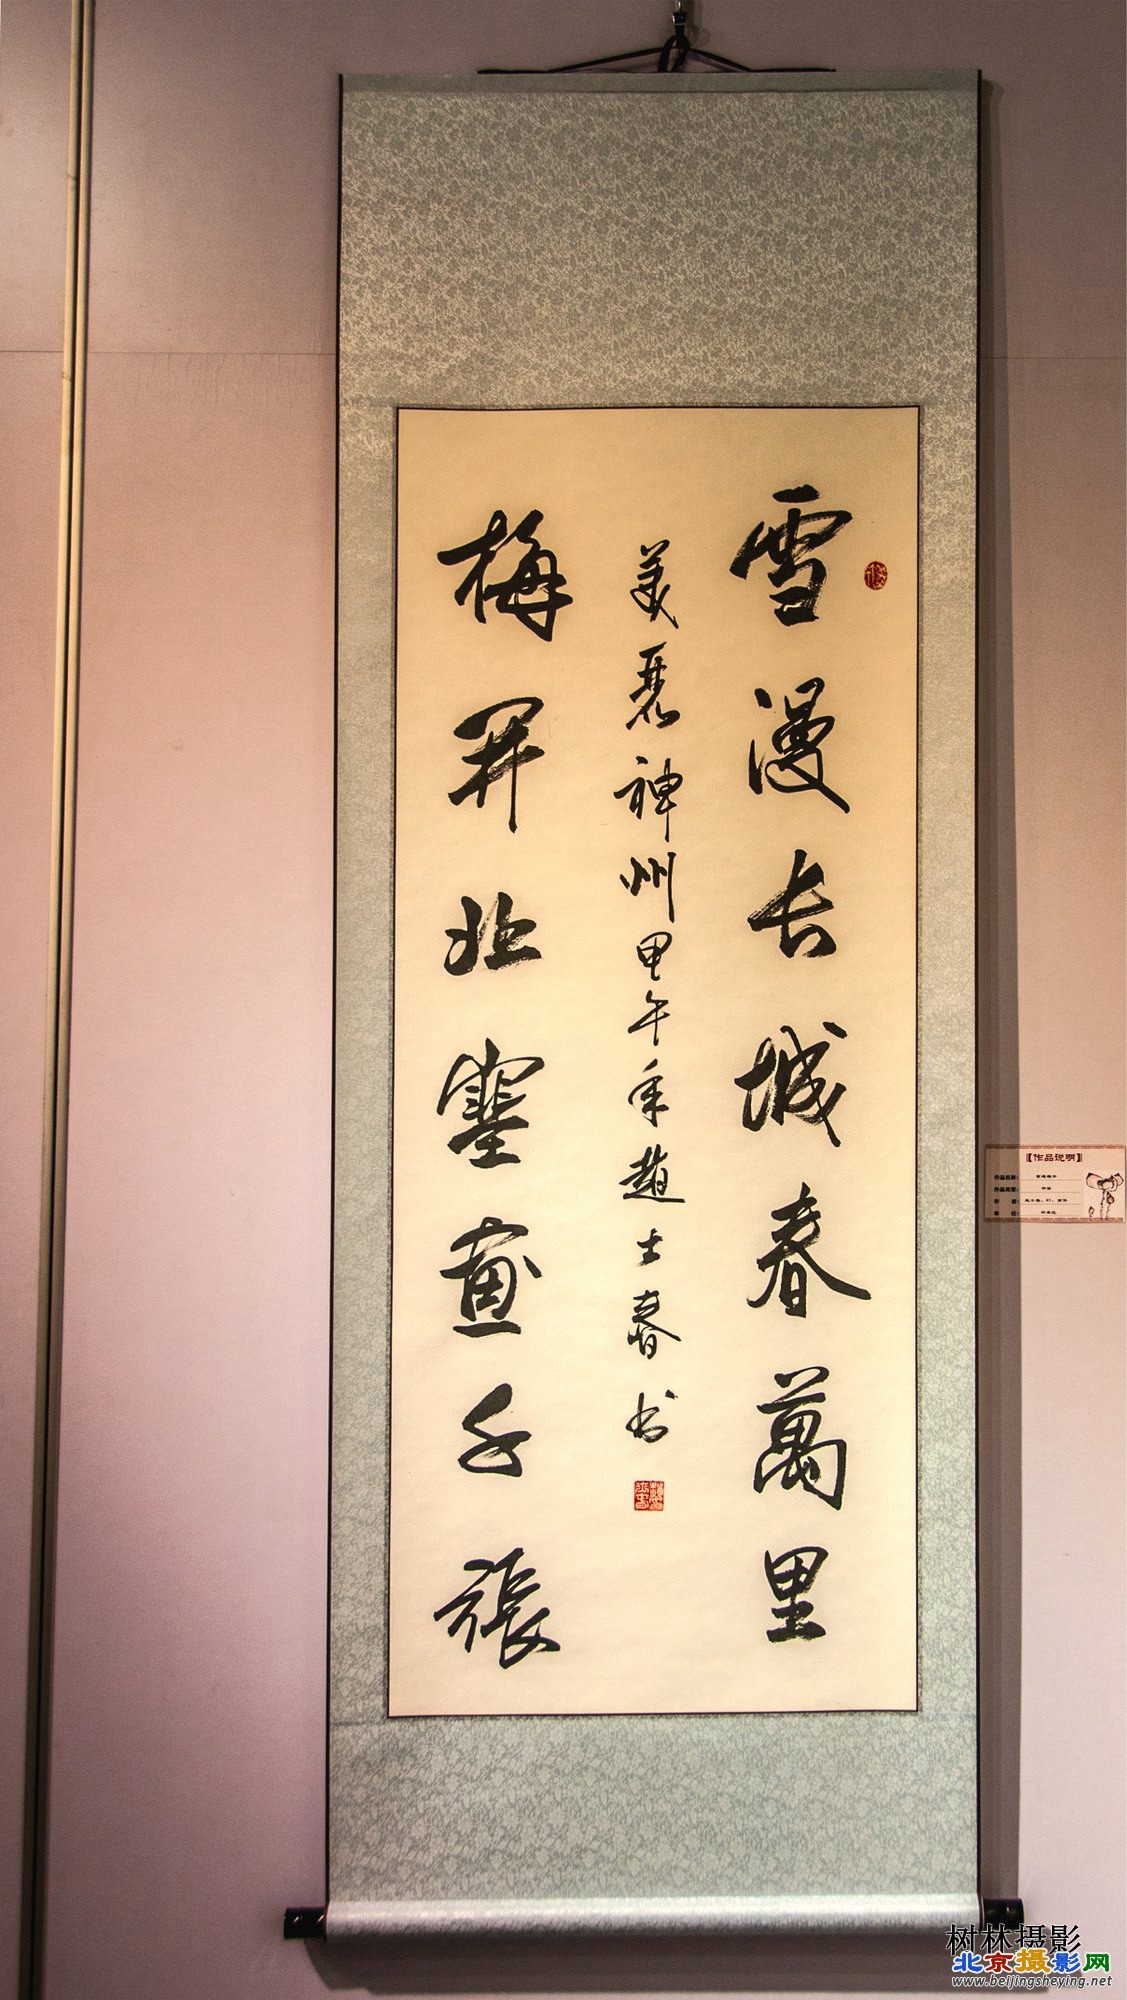 雪漫长城春萬里
美麗神州甲午年趙士春书
梅開北塞畫千張
【作品说明】
树林摄影
北京摄影网
www.beijingsheying.net